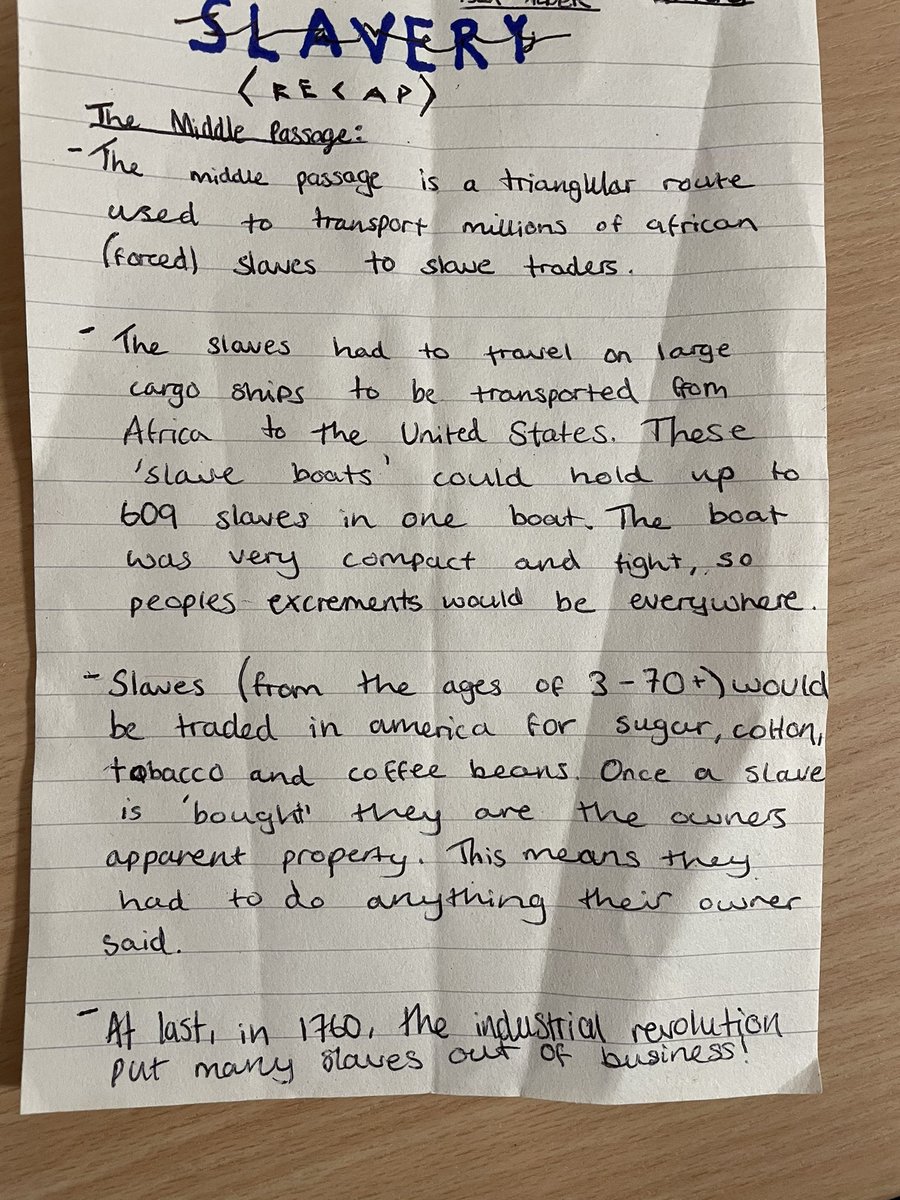 SLAVERY
(RECAP)
The Middle Passage:
- The middle passage is a triangular route
used to transport millions of african
(forced) slaves to slave traders.
- The slaves had to travel on large
cargo ships to be transported from
Africa to the United States. These
'slave boats' could hold up to
609 slaves in one boat. The boat
was very compact and tight, so
peoples excrements would be everywhere.
- Slaves (from the ages of 3-70+) would
be traded in america for sugar, cotton,
tobacco and coffee beans. Once a slave
is 'bought' they are the owners
apparent property. This means they
had to do anything their owner
said.
- At last, in 1760, the industrial revolution
put many slaves out of business!